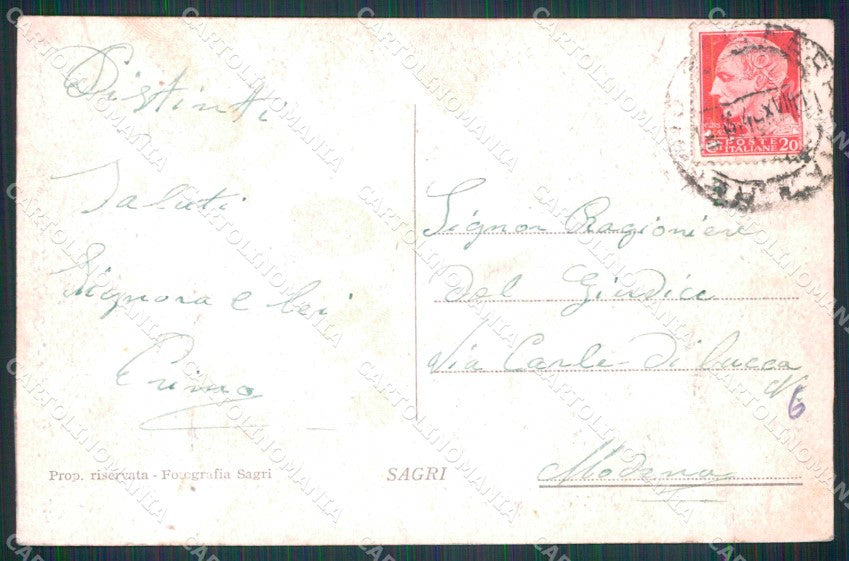 Distinti
Saluti
Signora e lei
Primo
Prop. riservata - Fotografia Sagri
SAGRI
POSTE
ITALIANE 20
Signor Ragioniere
Del Giudice
Via Carlo Di Lucca
N
6
Modena
CARTOLINOMANIA